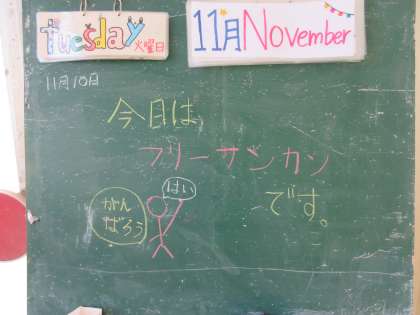 Tuesday 火曜日
11月 November
11月10日
今日は、
フリーサンカン
です。
はい
がん
ばろう